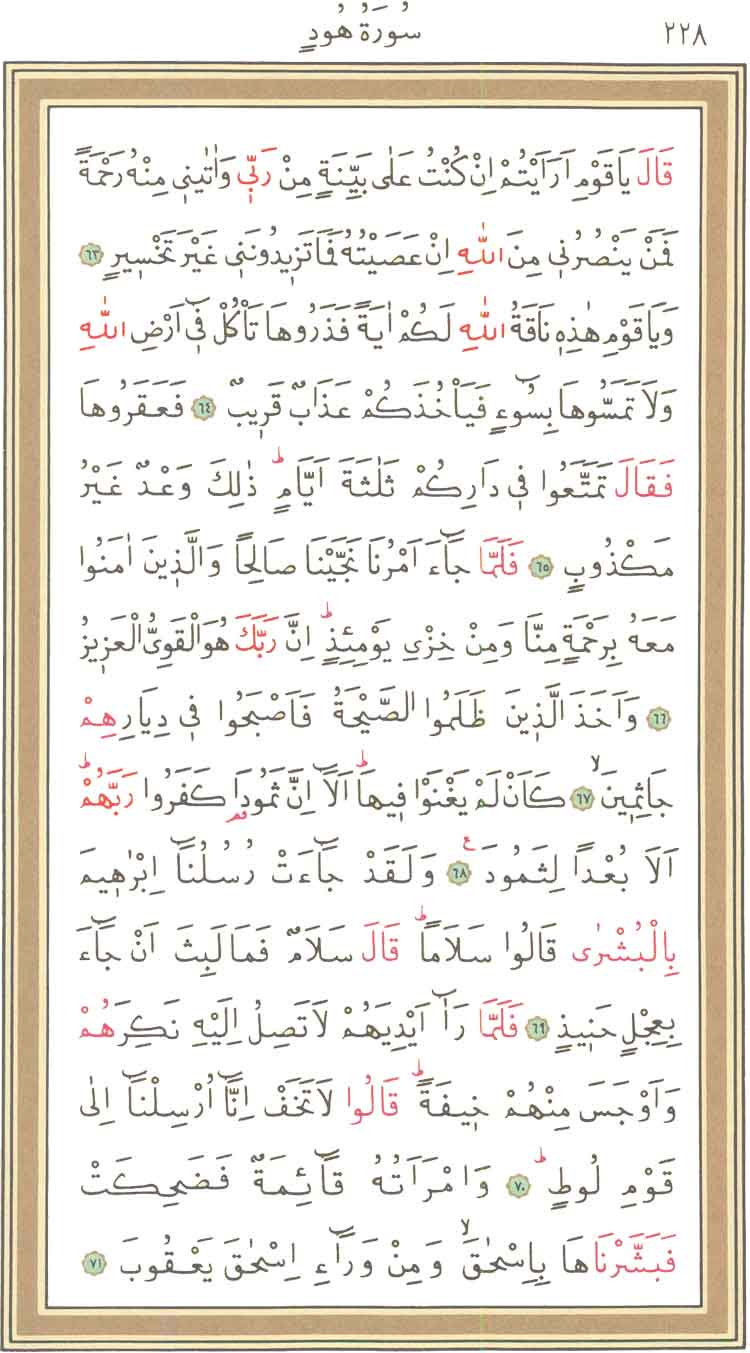 سُورَةُ هُودٍ ٢٢٨
قَالَ يَاقَوْمِ اَرَاَيْتُمْ اِنْ كُنْتُ عَلٰى بَيِّنَةٍ مِنْ رَبّ۪ي وَاٰتٰين۪ي مِنْهُ رَحْمَةً
فَمَنْ يَنْصُرُن۪ي مِنَ اللّٰهِ اِنْ عَصَيْتُهُ فَمَا تَز۪يدُونَن۪ي غَيْرَ تَخْس۪يرٍ ﴿٦٣﴾
وَيَاقَوْمِ هٰذِه۪ نَاقَةُ اللّٰهِ لَكُمْ اٰيَةً فَذَرُوهَا تَأْكُلْ ف۪ٓي اَرْضِ اللّٰهِ
وَلَا تَمَسُّوهَا بِسُٓوءٍ فَيَأْخُذَكُمْ عَذَابٌ قَر۪يبٌ ﴿٦٤﴾ فَعَقَرُوهَا
فَقَالَ تَمَتَّعُوا ف۪ي دَارِكُمْ ثَلٰثَةَ اَيَّامٍۜ ذٰلِكَ وَعْدٌ غَيْرُ
مَكْذُوبٍ ﴿٦٥﴾ فَلَمَّا جَٓاءَ اَمْرُنَا نَجَّيْنَا صَالِحًا وَالَّذ۪ينَ اٰمَنُوا
مَعَهُ بِرَحْمَةٍ مِنَّا وَمِنْ خِزْيِ يَوْمِئِذٍۜ اِنَّ رَبَّكَ هُوَ الْقَوِيُّ الْعَز۪يزُ
﴿٦٦﴾ وَاَخَذَ الَّذ۪ينَ ظَلَمُوا الصَّيْحَةُ فَاَصْبَحُوا ف۪ي دِيَارِهِمْ
جَاثِم۪ينَۙ ﴿٦٧﴾ كَاَنْ لَمْ يَغْنَوْا ف۪يهَاۜ اَلَٓا اِنَّ ثَمُودَا۬ كَفَرُوا رَبَّهُمْۜ
اَلَا بُعْدًا لِثَمُودَ ﴿٦٨﴾ ع وَلَقَدْ جَٓاءَتْ رُسُلُنَٓا اِبْرٰه۪يمَ
بِالْبُشْرٰى قَالُوا سَلَامًاۜ قَالَ سَلَامٌ فَمَا لَبِثَ اَنْ جَٓاءَ
بِعِجْلٍ حَن۪يذٍ ﴿٦٩﴾ فَلَمَّا رَآٰ اَيْدِيَهُمْ لَا تَصِلُ اِلَيْهِ نَكِرَهُمْ
وَاَوْجَسَ مِنْهُمْ خ۪يفَةًۜ قَالُوا لَا تَخَفْ اِنَّٓا اُرْسِلْنَٓا اِلٰى
قَوْمِ لُوطٍۜ ﴿٧٠﴾ وَامْرَاَتُهُ قَٓائِمَةٌ فَضَحِكَتْ
فَبَشَّرْنَاهَا بِاِسْحٰقَۙ وَمِنْ وَرَٓاءِ اِسْحٰقَ يَعْقُوبَ ﴿٧١﴾